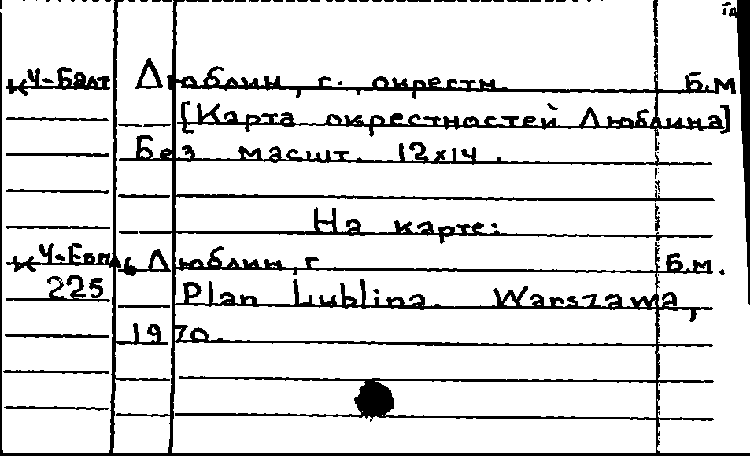 К Ч-Балт Люблин, г., окрестн. Б.М
[Карта окрестностей Люблина]
Без масшт. 12х14.
На карте:
Люблин, г Б.м.
225 Plan Lublina. Warszawa,
1970.